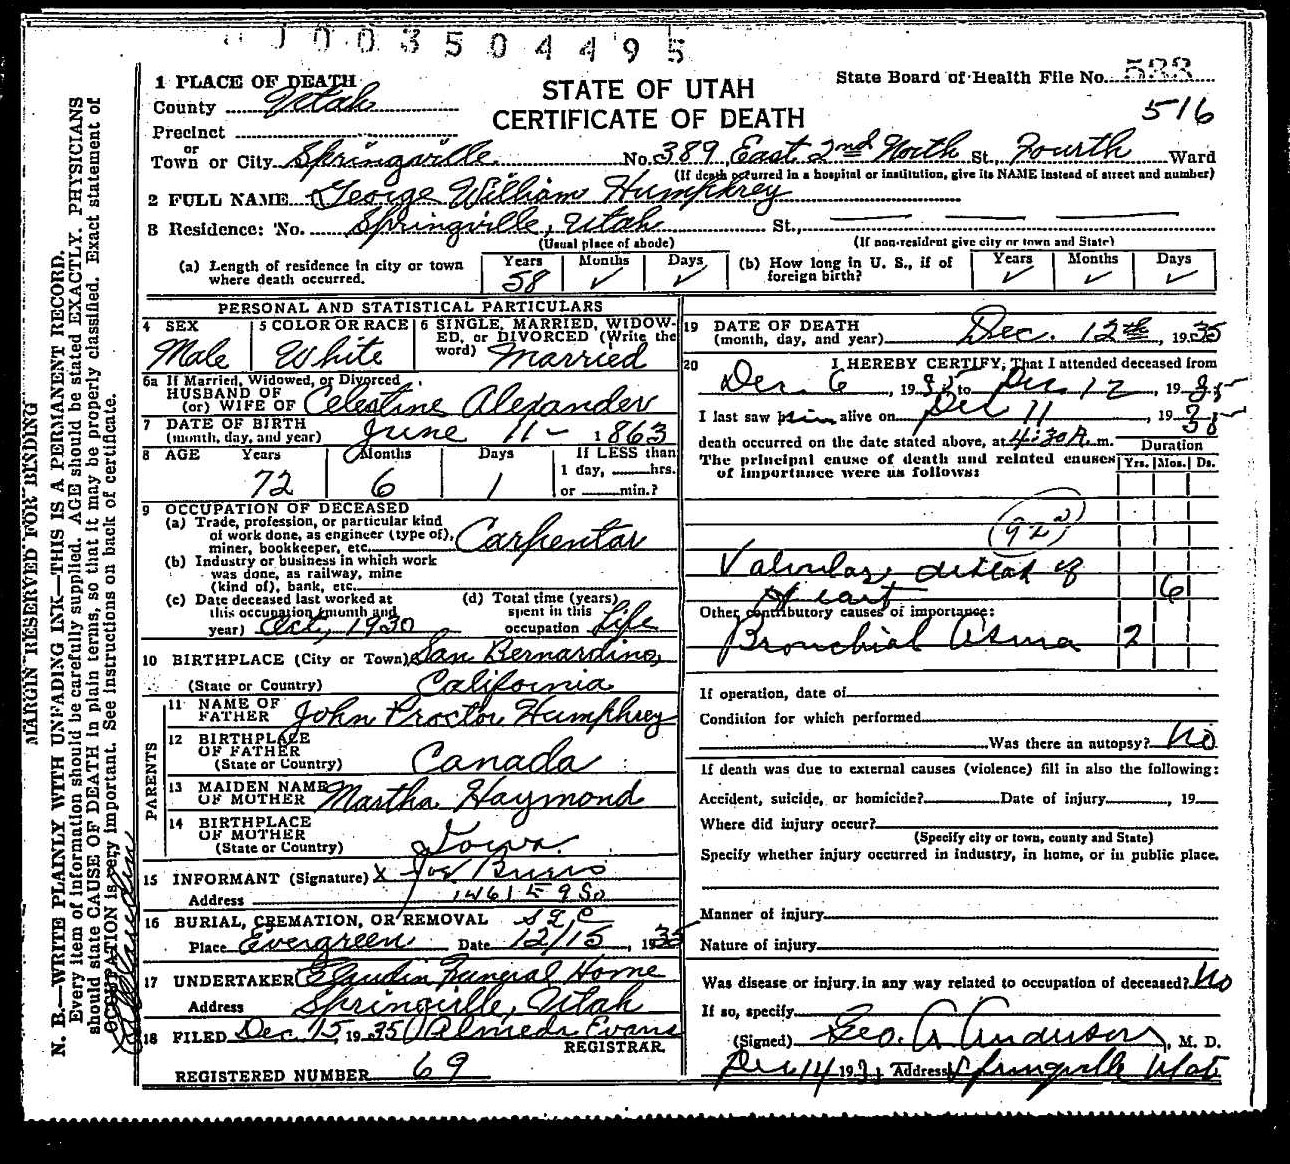 1003504495
1 PLACE OF DEATH
County Utah
Precinct
or
Town or City Springville
STATE OF UTAH
CERTIFICATE OF DEATH
State Board of Health File No. 533
516
No. 389 East 2nd North St., Fourth Ward
(If death occurred in a hospital or institution, give its NAME instead of street and number)
2 FULL NAME George William Humphrey
3 Residence: No. Springville, Utah St.,
(Usual place of abode) (If non-resident give city or town and State)
(a) Length of residence in city or town where death occurred. Years 58 Months ✓ Days ✓
(b) How long in U. S., if of foreign birth? Years ✓ Months ✓ Days ✓
PERSONAL AND STATISTICAL PARTICULARS
4 SEX Male
5 COLOR OR RACE White
6 SINGLE, MARRIED, WIDOWED, or DIVORCED (Write the word) Married
6a If Married, Widowed, or Divorced
HUSBAND OF
(or) WIFE OF Celestine Alexander
7 DATE OF BIRTH
(month, day, and year) June 11- 1863
8 AGE Years 72 Months 6 Days 1
If LESS than
1 day, hrs.
or min.?
9 OCCUPATION OF DECEASED
(a) Trade, profession, or particular kind
of work done, as engineer (type of),
miner, bookkeeper, etc. Carpentar
(b) Industry or business in which work
was done, as railway, mine
(kind of), bank, etc.
(c) Date deceased last worked at
this occupation (month and
year) Oct, 1930
(d) Total time (years)
spent in this
occupation Life
10 BIRTHPLACE (City or Town) San Bernardino,
(State or Country) California
PARENTS
11 NAME OF
FATHER John Proctor Humphrey
12 BIRTHPLACE
OF FATHER
(State or Country) Canada
13 MAIDEN NAME
OF MOTHER Martha Haymond
14 BIRTHPLACE
OF MOTHER
(State or Country) Iowa
15 INFORMANT (Signature) X Joe
Address 1461 E 9 So
S L C
16 BURIAL, CREMATION, OR REMOVAL
Place Evergreen Date 12/15, 1935
17 UNDERTAKER Claudin Funeral Home
Address Springville, Utah
18 FILED Dec. 15, 1935 Almeda Evans
REGISTRAR.
REGISTERED NUMBER 69
19 DATE OF DEATH
(month, day, and year) Dec. 12th, 1935
20 I HEREBY CERTIFY, That I attended deceased from
Dec 6, 1935 to Dec 12, 1935
I last saw him alive on Dec 11, 1935
death occurred on the date stated above, at 4:30 A. m.
Duration
The principal cause of death and related causes
of importance were as follows: Yrs. Mos. Ds.
92a
Valvular disease of
Heart 6
Other contributory causes of importance:
Bronchial Asma 2
If operation, date of
Condition for which performed
Was there an autopsy? No
If death was due to external causes (violence) fill in also the following:
Accident, suicide, or homicide? Date of injury, 19
Where did injury occur?
(Specify city or town, county and State)
Specify whether injury occurred in industry, in home, or in public place.
Manner of injury
Nature of injury
Was disease or injury in any way related to occupation of deceased? No
If so, specify
(Signed) Geo. A Anderson, M. D.
Dec 14 193 Address Springville Utah
MARGIN RESERVED FOR BINDING
N. B.—WRITE PLAINLY WITH UNFADING INK—THIS IS A PERMANENT RECORD.
Every item of information should be carefully supplied. AGE should be stated EXACTLY. PHYSICIANS
should state CAUSE OF DEATH in plain terms, so that it may be properly classified. Exact statement of
OCCUPATION is very important. See instructions on back of certificate.